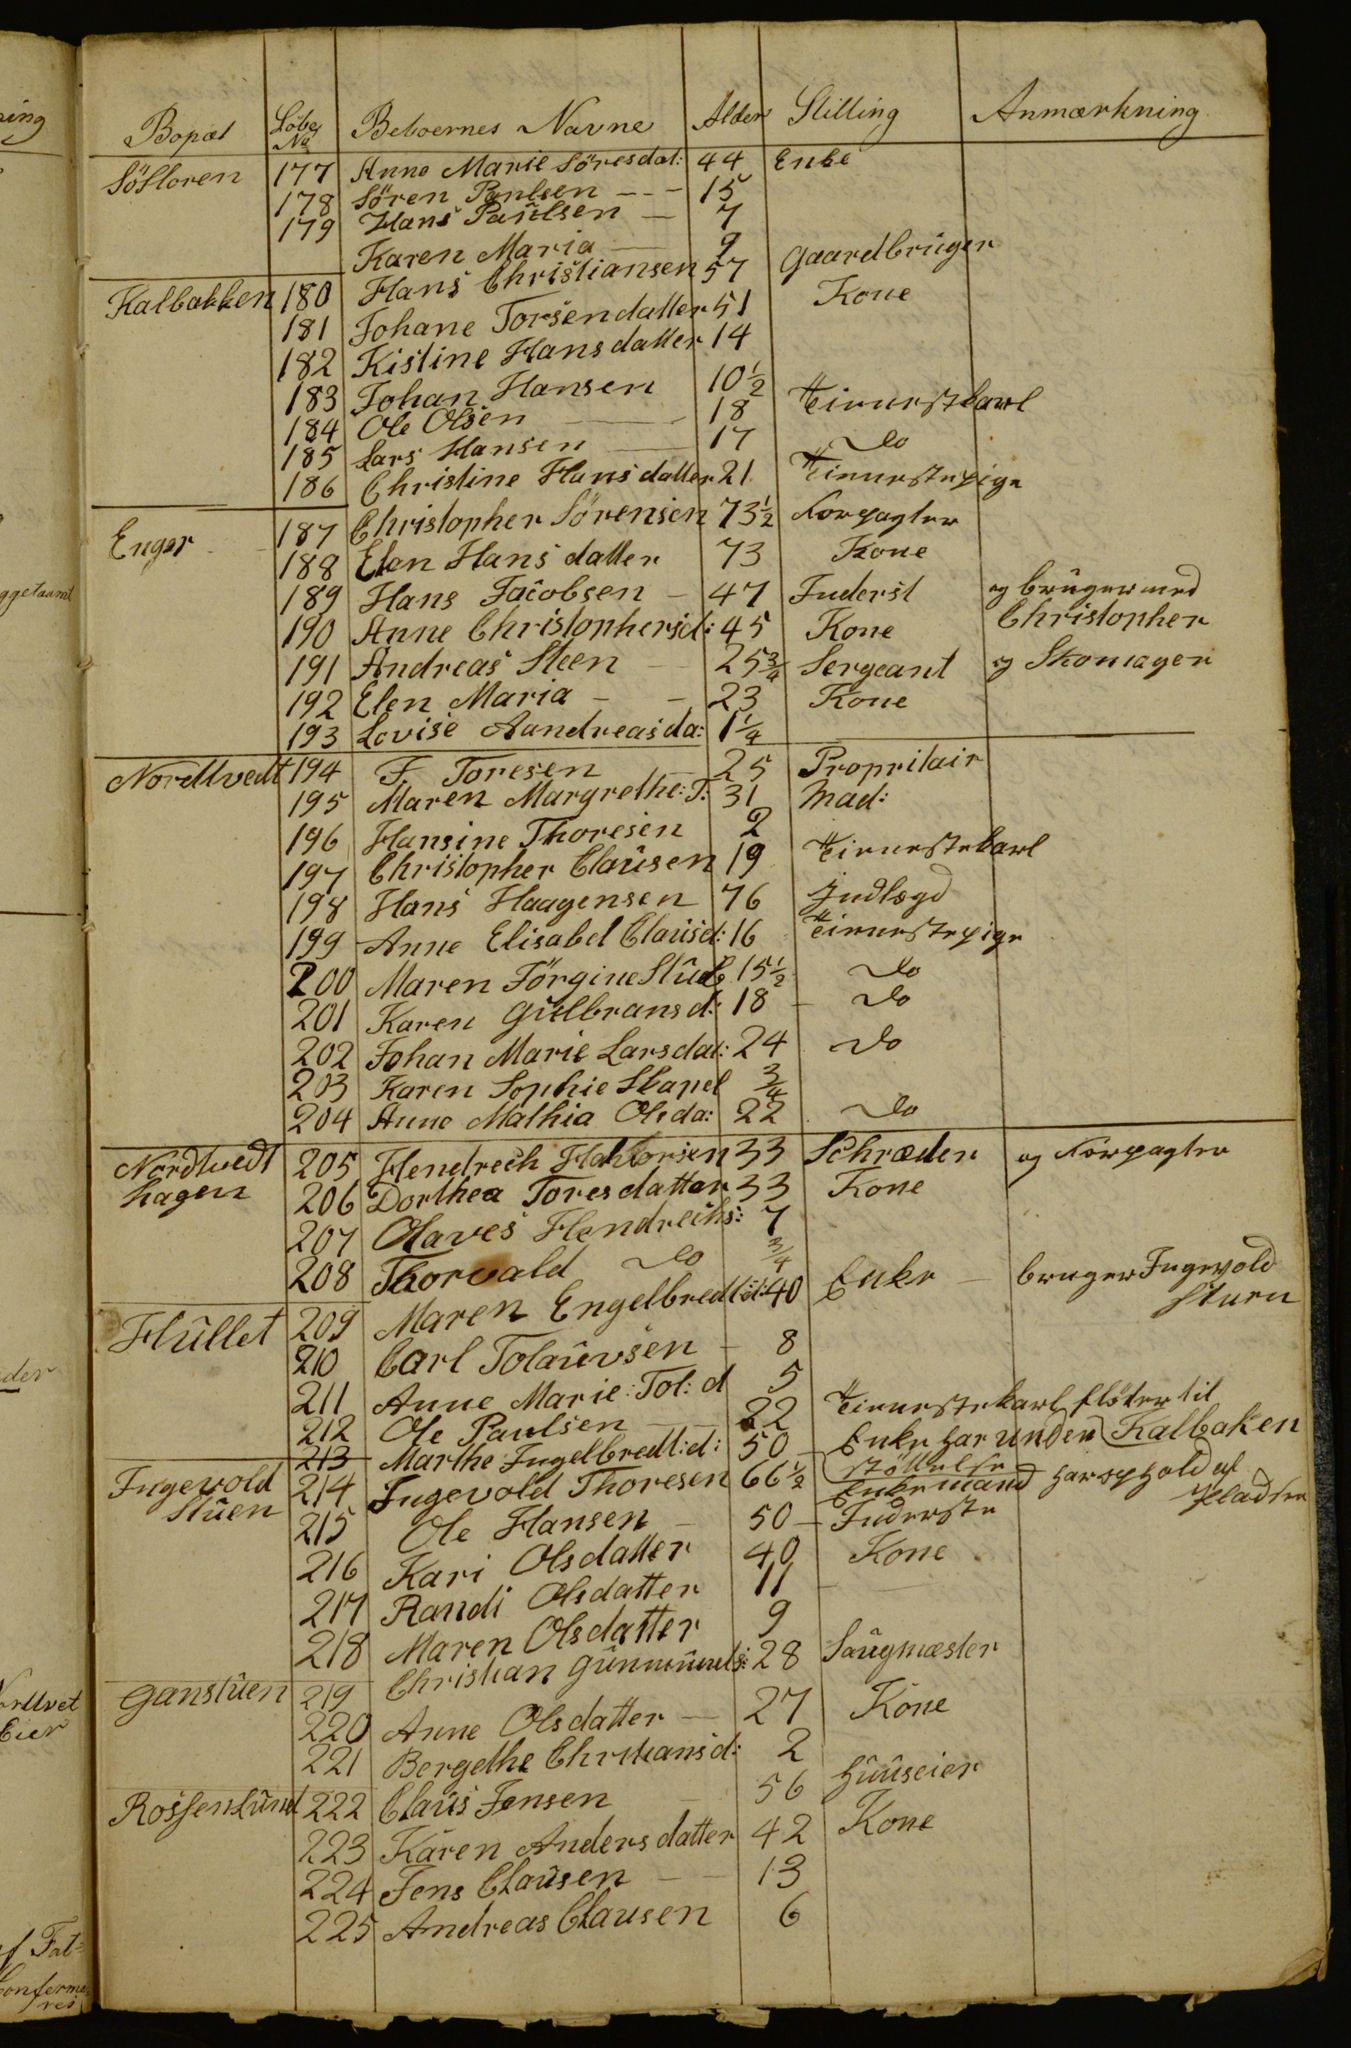 Bopæl Löbe No Beboernes Navne Alder Stilling Anmærkning
Söfloren 177 Anne Marie Söresdat: 44 Enke
178 Sören Paulsen - - - 15
179 Hans Paulsen - 7
Karen Maria - 9
Kalbakken 180 Hans Christiansen 57 Gaardbruger
181 Johane Torsendatter 51 Kone
182 Kistine Hansdatter 14
183 Johan Hansen 10½
184 Ole Olsen - 18 Tienestkarl
185 Lars Hansen - 17 Do
186 Christine Hansdatter 21 Tienestepige
Enger 187 Christopher Sörensen 73½ Forpagter
188 Elen Hans datter 73 Kone
189 Hans Jacobsen - 47 Inderst og bruger med
190 Anne Christophersd: 45 Kone Christopher
191 Andreas Steen - 25¾ Sergeant og Skomager
192 Elen Maria - - 23 Kone
193 Lovise Aandreasda: 1¼
Nordtvedt 194 F. Toresen 25 Propritair
195 Maren Margrethe: T: 31 Mad:
196 Hansine Thoresen 2
197 Christopher Clausen 19 Tienestekarl
198 Hans Haagensen 76 Indlægd
199 Anne Elisabel Clausd: 16 Tienestepige
200 Maren Jörgine 15½ Do
201 Karen Gulbransd: 18 - Do
202 Johan Marie Larsdat: 24 Do
203 Karen Sophie Skapel ¾
204 Anne Mathia Olsda: 22 Do
Nordtvedt 205 Hendrech 33 Schræder og Forpagter
hagen 206 Dorthea Toresdatter 33 Kone
207 Olaves Hendrechs: 7
208 Thorvald Do ¾
Hullet 209 Maren Engelbredtsd: 40 Enke - bruger Ingevold
Stuen
210 Carl Tolauvsen - 8
211 Anne Marie: Tol: d 5
212 Ole Paulsen - - 22 Tienestekarl flöter til
213 Marthe Ingelbredt: d: 50 - Enke har unden Kalbaken
stöttelse
Ingevold 214 Ingevold Thoresen 66½ Enkemand har ophold af
Stuen Pladsen
215 Ole Hansen - 50 - Inderste
216 Kari Olsdatter 40 Kone
217 Randi Olsdatter 11 -
218 Maren Olsdatter 9
Ganstuen 219 Christian Gunmunds: 28 Saugmæster
220 Anne Olsdatter - 27 Kone
221 Bergethe Christiansd: 2
Rossenlund 222 Claus Jensen - 56 Huuseier
223 Karen Anders datter 42 Kone
224 Jens Clausen - - 13
225 Andreas Clausen 6